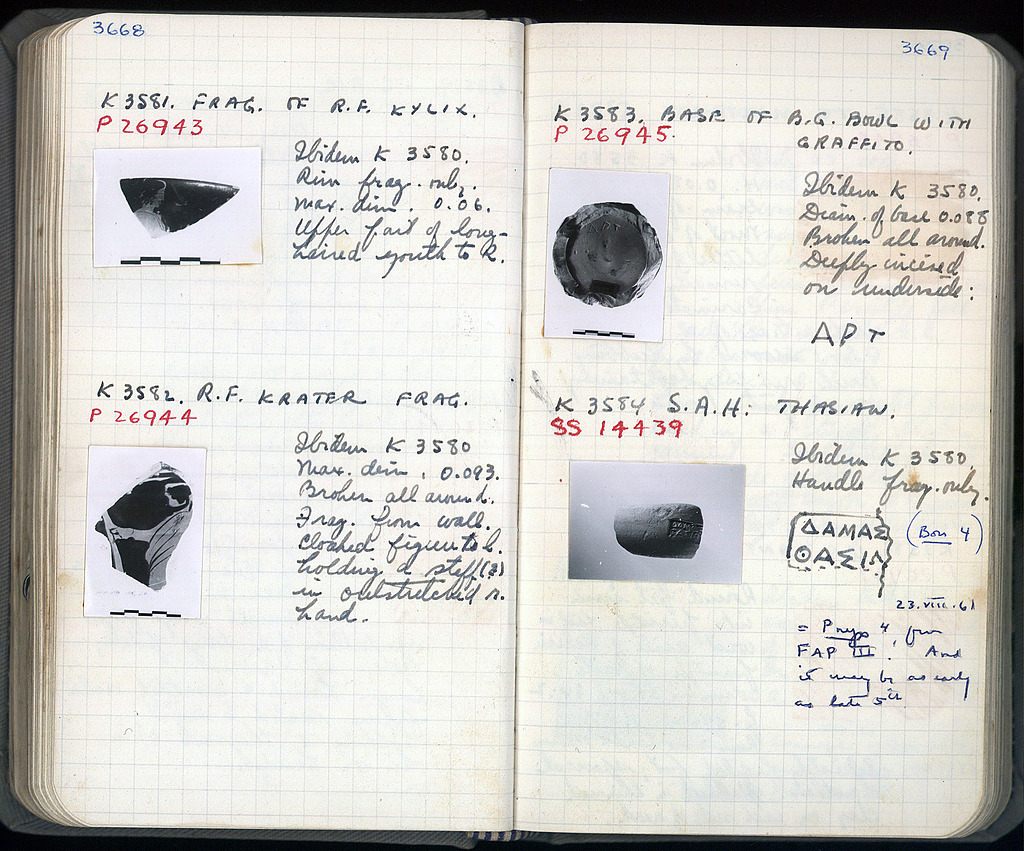 3668
K 3581. FRAG. OF R.F. KYLIX.
P 26943
Ibidem K 3580.
Rim frag. only.
Max. dim. 0.06.
Upper part of long-
haired youth to R.
K 3582. R.F. KRATER FRAG.
P 26944
Ibidem K 3580
Max. dim. 0.093.
Broken all around.
Frag. from wall.
Cloaked figure to l.
holding a staff(?)
in outstretched r.
hand.
3669
K 3583. BASE OF B.G. BOWL WITH
GRAFFITO.
P 26945.
Ibidem K 3580.
Diam. of base 0.088
Broken all around.
Deeply incised
on underside:
ΑΡΤ
K 3584. S.A.H: THASIAN.
SS 14439
Ibidem K 3580
Handle frag. only.
ΔΑΜΑΣ
ΘΑΣΙΩ
(Bon 4)
23.VIII.61
= Pnyx 4, from
FAP III. And
it may be as early
as late 5th